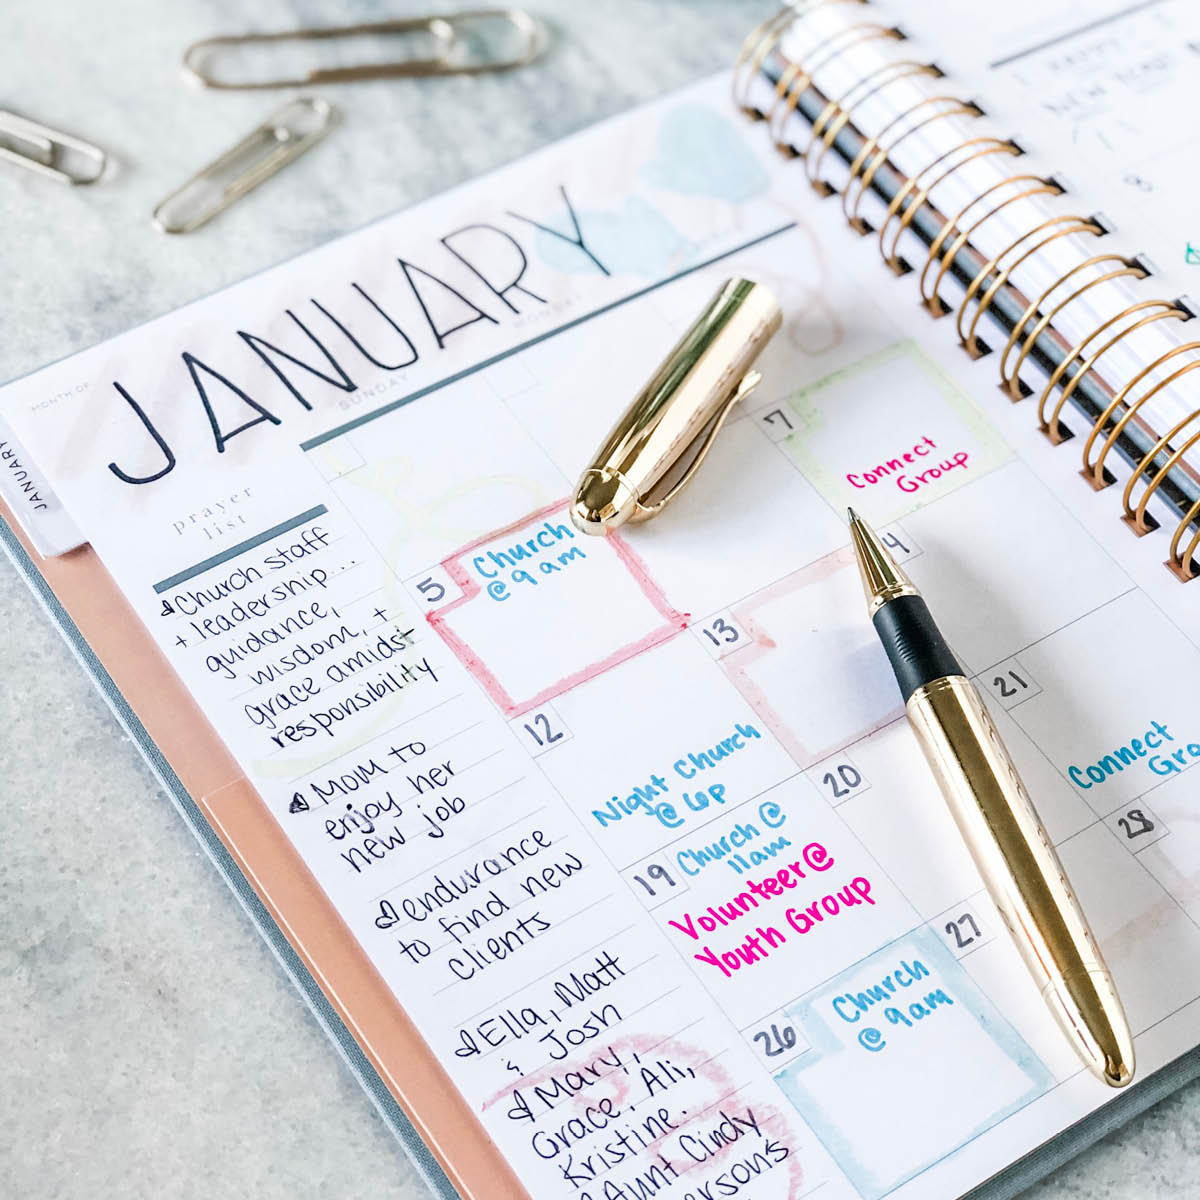 MONTH OF
JANUARY
JANUARY
SUNDAY
MONDAY
prayer
list
Church staff
+ leadership...
guidance,
wisdom, +
grace amidst
responsibility
Mom to
enjoy her
new job
endurance
to find new
clients
Ella, Matt
& Josh
Mary,
Grace, Ali,
Kristine.
Aunt Cindy
5
Church
@ 9am
7
Connect
Group
12
Night Church
@ 6p
13
21
Connect
19
Church @
11am
Volunteer @
Youth Group
20
28
26
Church
@ 9am
27
HAPPY
NEW
8